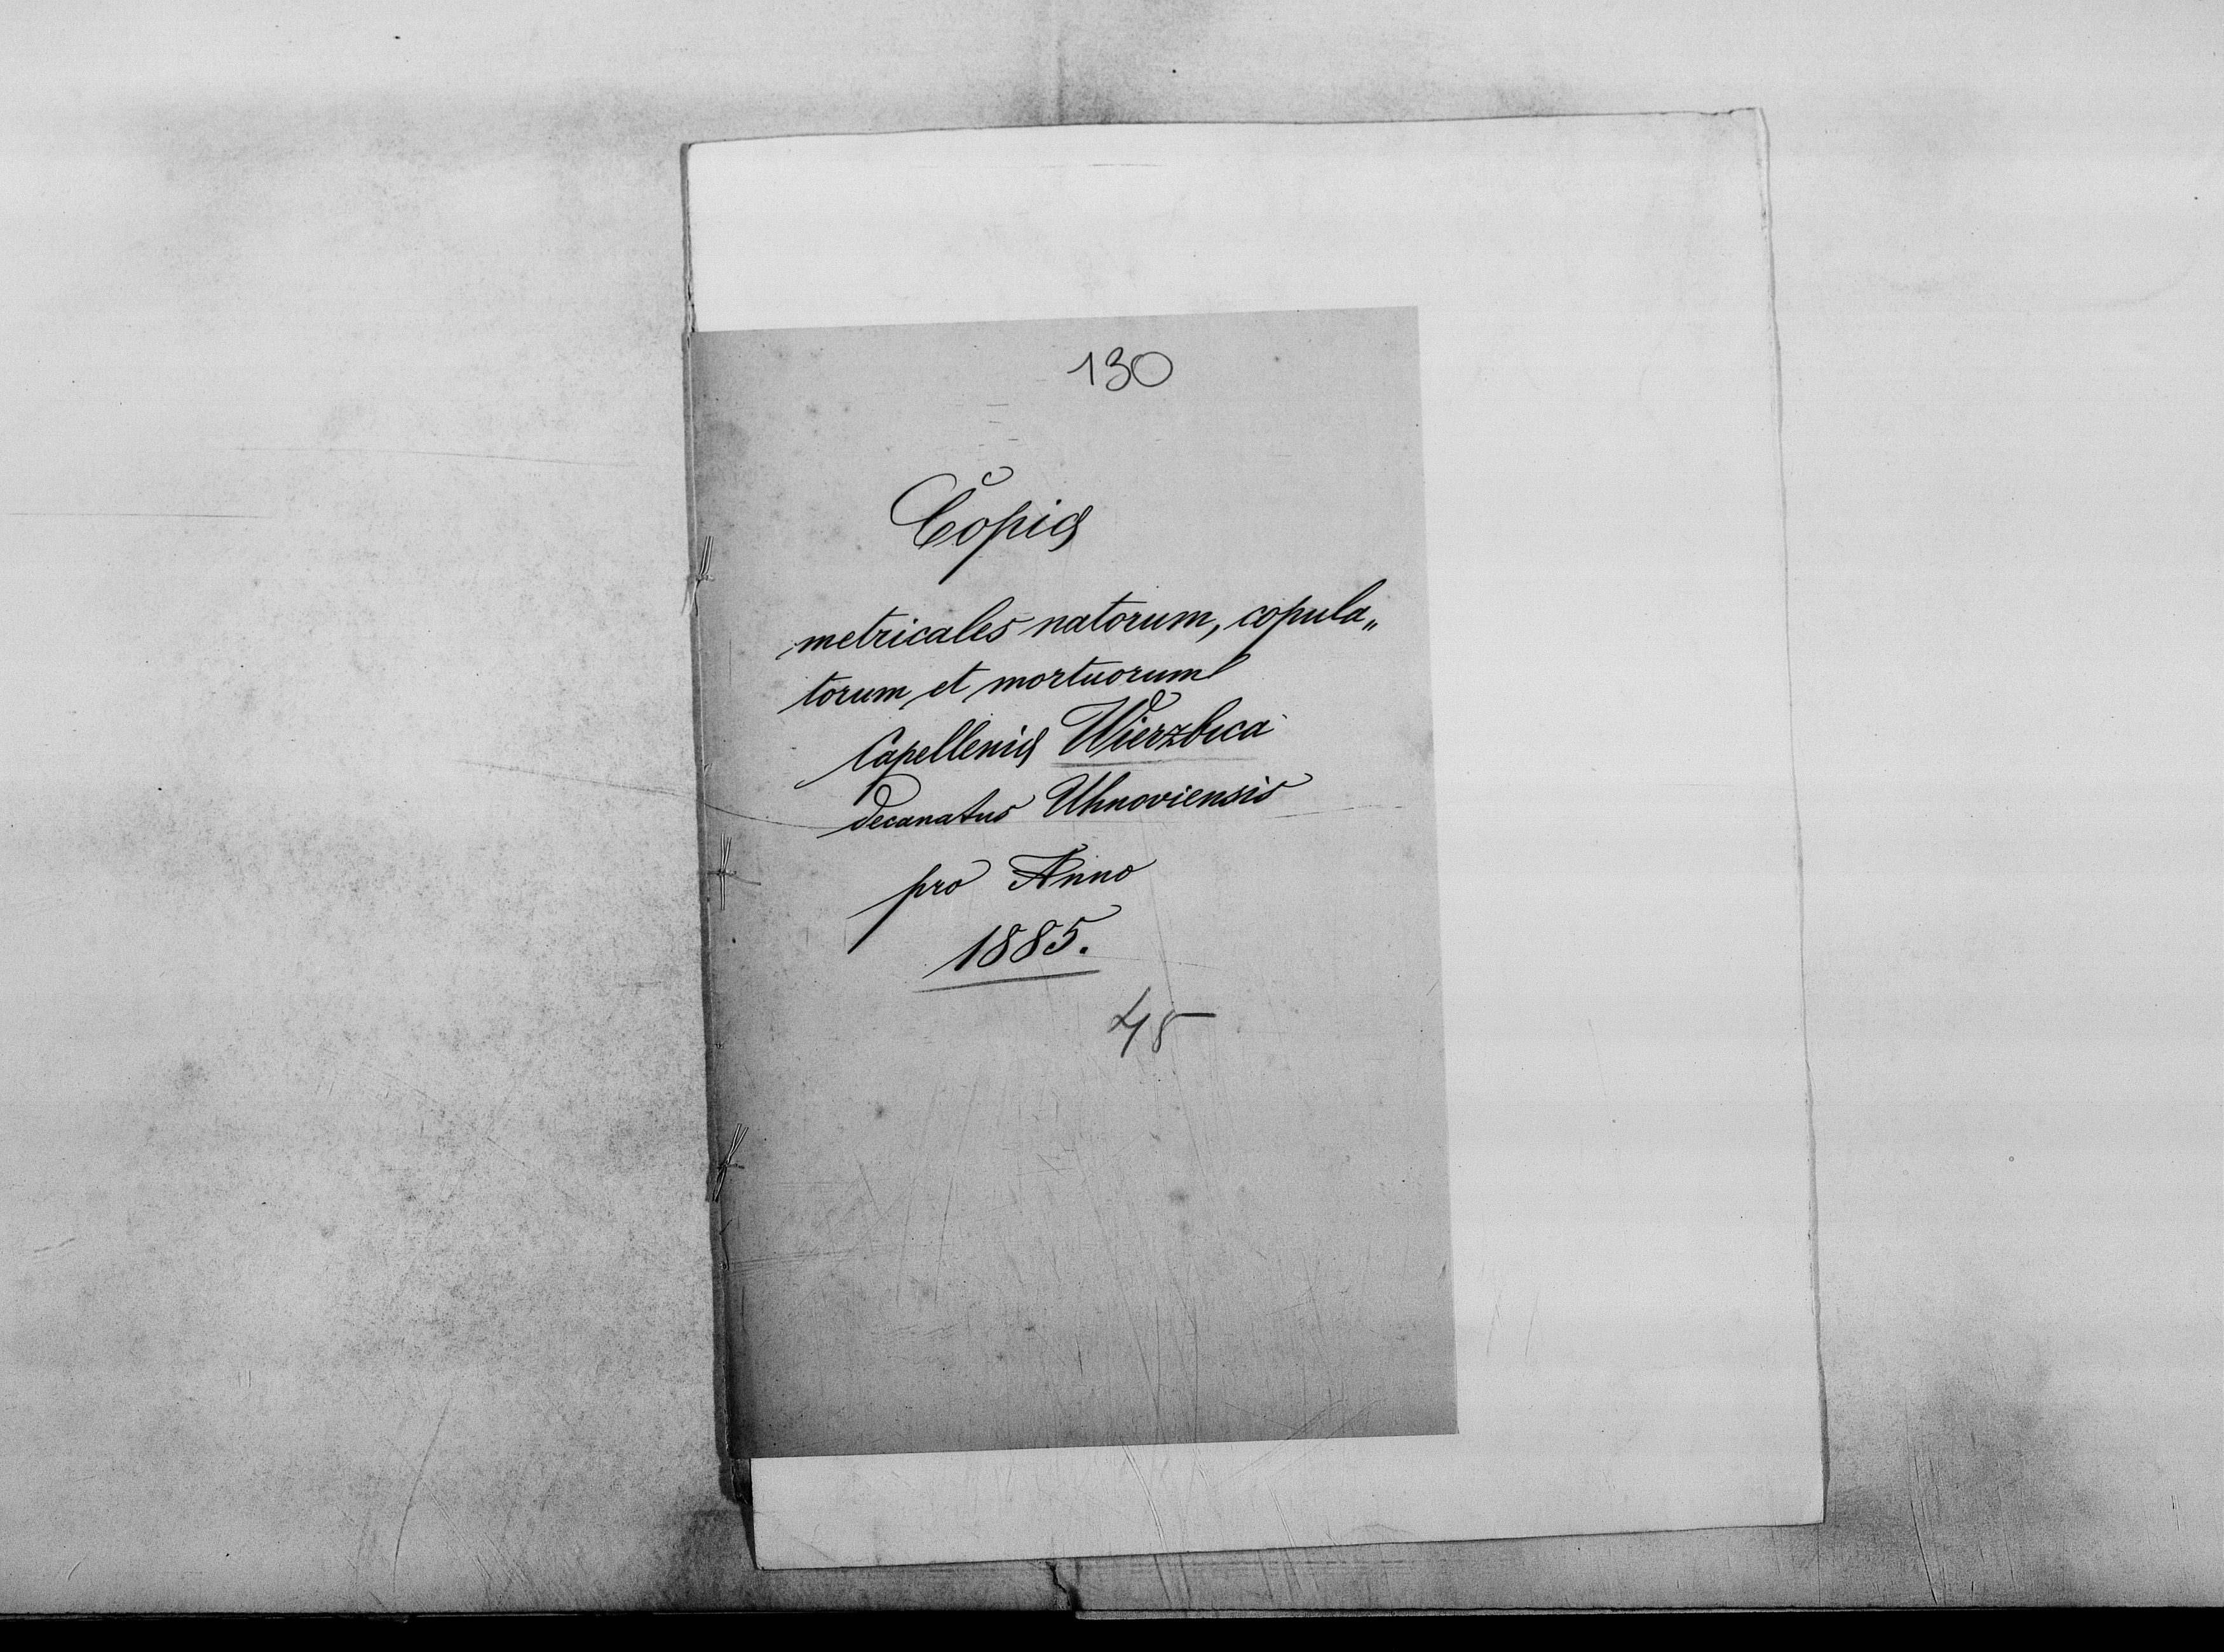 130
Copiæ
metricales natorum, copula„
torum et mortuorum
Capelleniæ Wierzbica
decanatus Uhnoviensis
pro Anno
1885.